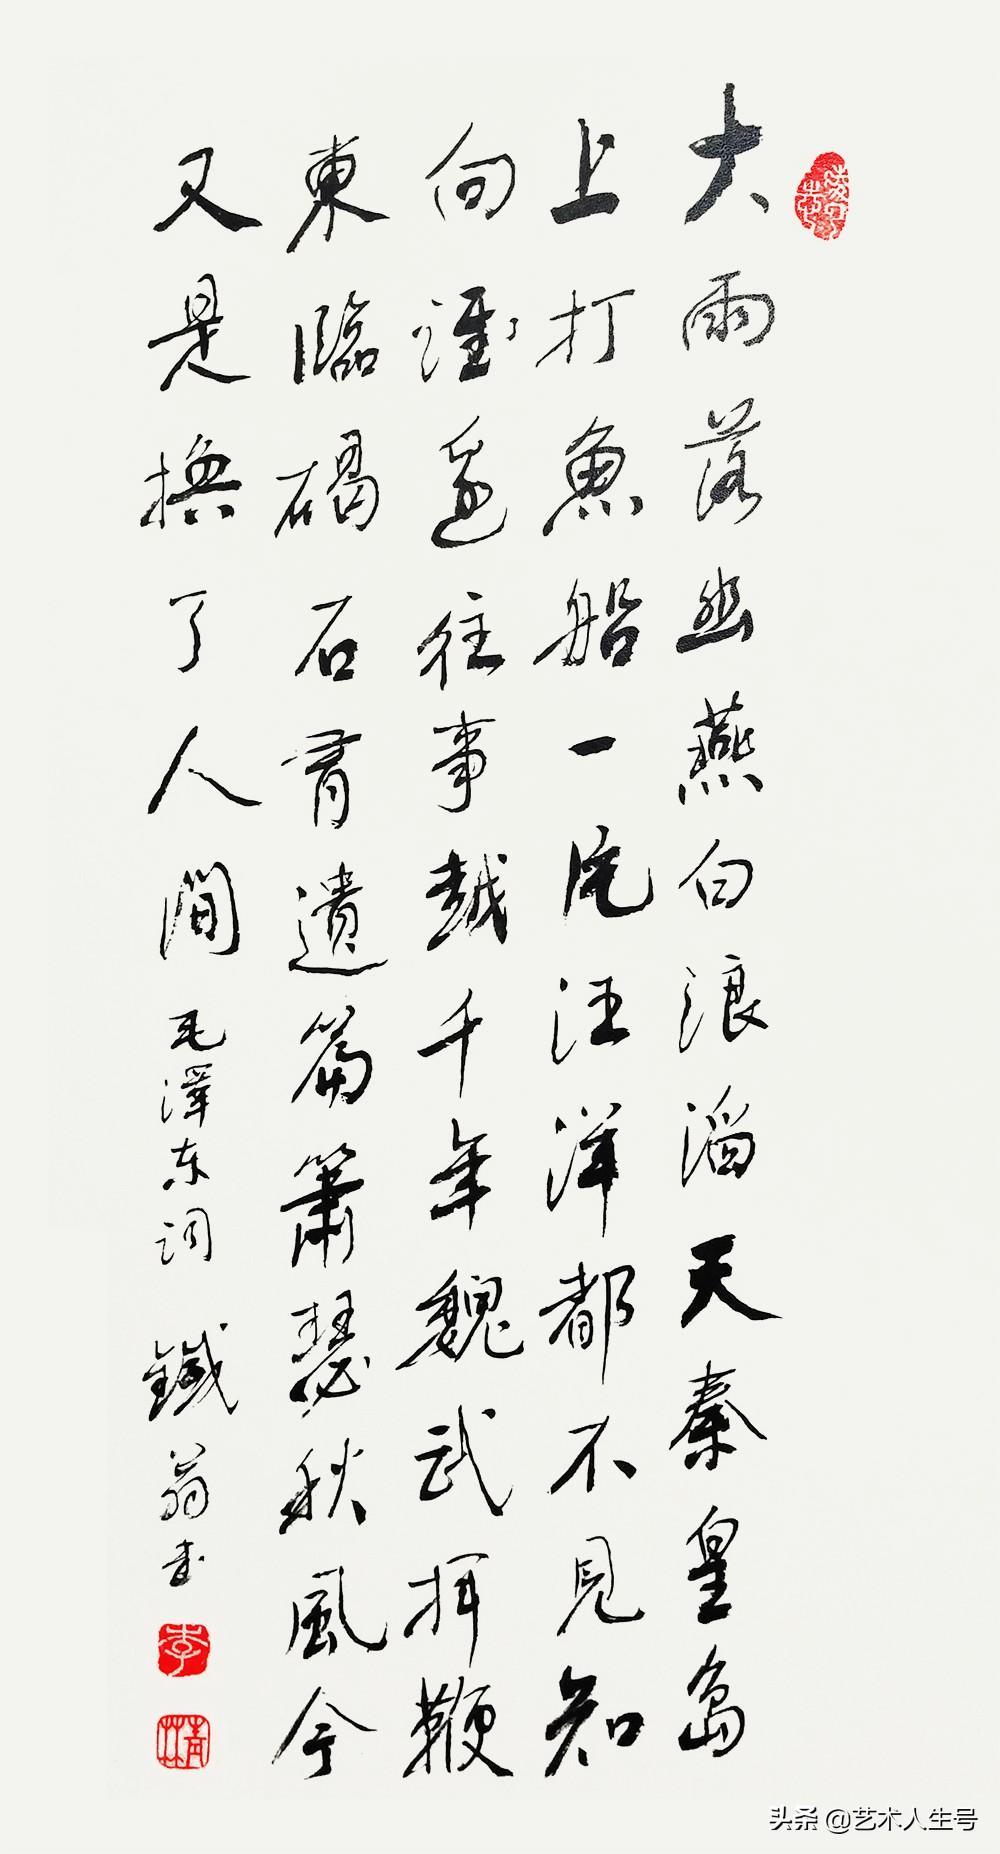 大雨落幽燕白浪滔天秦皇島
上打魚船一片汪洋都不見知
向誰邊往事越千年魏武揮鞭
東臨碣石有遺篇簫瑟秋風今
又是換了人間 毛澤东詞 鐵翁書
李
头条 @艺术人生号